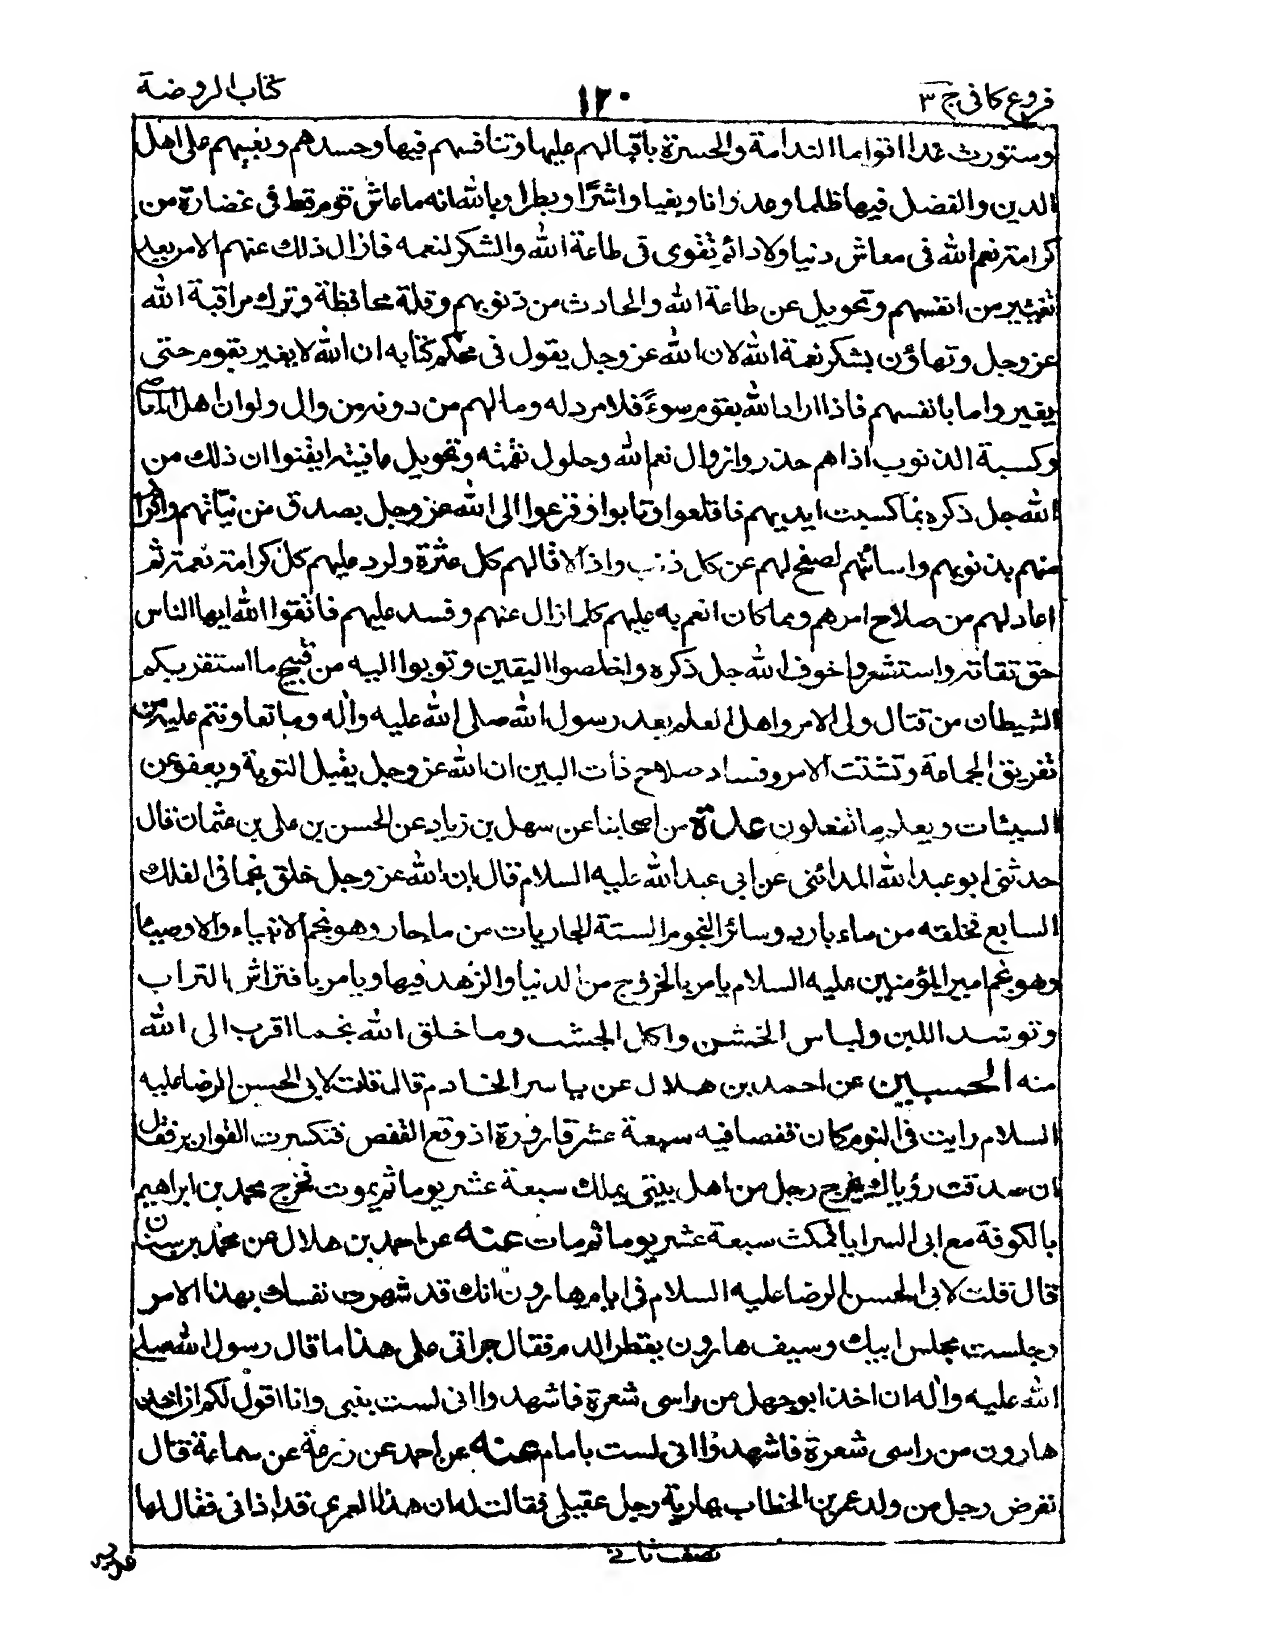 فروع كافى ج ٣
١٢٠
كتاب الروضة
وستورث غدا اقواما الندامة والحسرة باقبالهم عليها وتنافسهم فيها وحسدهم وبغيهم على اهل
الدين والفضل فيها ظلما وعدوانا وبغيا واشرًا وبطرا وبالله انه ما عاش قوم قط فى غضارة من
كرامة نعم الله فى معاش دنيا ولا دائم تقوى فى طاعة الله والشكر لنعمه فازال ذلك عنهم الا من بعد
تغيير من انفسهم وتحويل عن طاعة الله والحادث من ذنوبهم وقلة محافظة وترك مراقبة الله
عز وجل وتهاؤن بشكر نعمة الله لان الله عز وجل يقول فى محكم كتابه ان الله لا يغير بقوم حتى
يغيروا ما بانفسهم فاذا اراد الله بقوم سوءً فلا مرد له وما لهم من دونه من وال ولو ان اهل المعاصى
وكسبة الذنوب اذا هم حذروا زوال نعم الله وحلول نقمته وتحويل عافيته ايقنوا ان ذلك من
الله جل ذكره بما كسبت ايديهم فاقلعوا وتابوا وفزعوا الى الله عز وجل بصدق من نيّاتهم واقرار
منهم بذنوبهم واسائتهم لصفح لهم عن كل ذنب واذا لاقالهم كل عثرة ولرد عليهم كل كرامة نعمة ثم
اعاد لهم من صلاح امرهم ومما كان انعم به عليهم كلما زال عنهم وفسد عليهم فاتقوا الله ايها الناس
حق تقاته واستشعروا خوف الله جل ذكره واخلصوا اليقين وتوبوا اليه من قبيح ما استفزبكم
الشيطان من قتال ولى الامر واهل العلم بعد رسول الله صلى الله عليه وآله وما تعاونتم عليه من
تفريق الجماعة وتشتت الامر وفساد صلاح ذات البين ان الله عز وجل يقبل التوبة ويعفو عن
السيئات ويعلم ما تفعلون عدة من اصحابنا عن سهل بن زياد عن الحسن بن على بن عثمان قال
حدثنى ابو عبد الله المدائنى عن ابى عبد الله عليه السلام قال ان الله عز وجل خلق نجما فى الفلك
السابع فخلقه من ماء بارد وسائر النجوم الستة الجاريات من ماء حار وهو نجم الانبياء والاوصياء
وهو نجم امير المؤمنين عليه السلام يامر بالخروج من الدنيا والزهد فيها ويامر بافتراش التراب
وتوسد اللبن ولباس الخشن واكل الجشب وما خلق الله نجما اقرب الى الله
منه الحسين عن احمد بن هلال عن ياسر الخادم قال قلت لابى الحسن الرضا عليه
السلام رايت فى النوم كان قفصا فيه سبعة عشر قارورة اذ وقع القفص فتكسرت القوارير فقال
ان صدقت رؤياك يخرج رجل من اهل بيتى يملك سبعة عشر يوما ثم يموت فخرج محمد بن ابراهيم
بالكوفة مع ابى السرايا فمكث سبعة عشر يوما ثم مات عنه عن احمد بن هلال عن محمد بن سنان
قال قلت لابى الحسن الرضا عليه السلام فى ايام هارون انك قد شهرت نفسك بهذا الامر
وجلست مجلس ابيك وسيف هارون يقطر الدم فقال جرانى على هذا ما قال رسول الله صلى
الله عليه وآله ان اخذ ابو جهل من راسى شعرة فاشهدوا انى لست بنبى وانا اقول لكم ان اخذ
هارون من راسى شعرة فاشهدوا انى لست بامام عنه عن احمد عن زرعة عن سماعة قال
تعرض رجل من ولد عمر بن الخطاب بجارية رجل عقيلى فقالت له ان هذا العمرى قد اذانى فقال لها
نصف ثانى